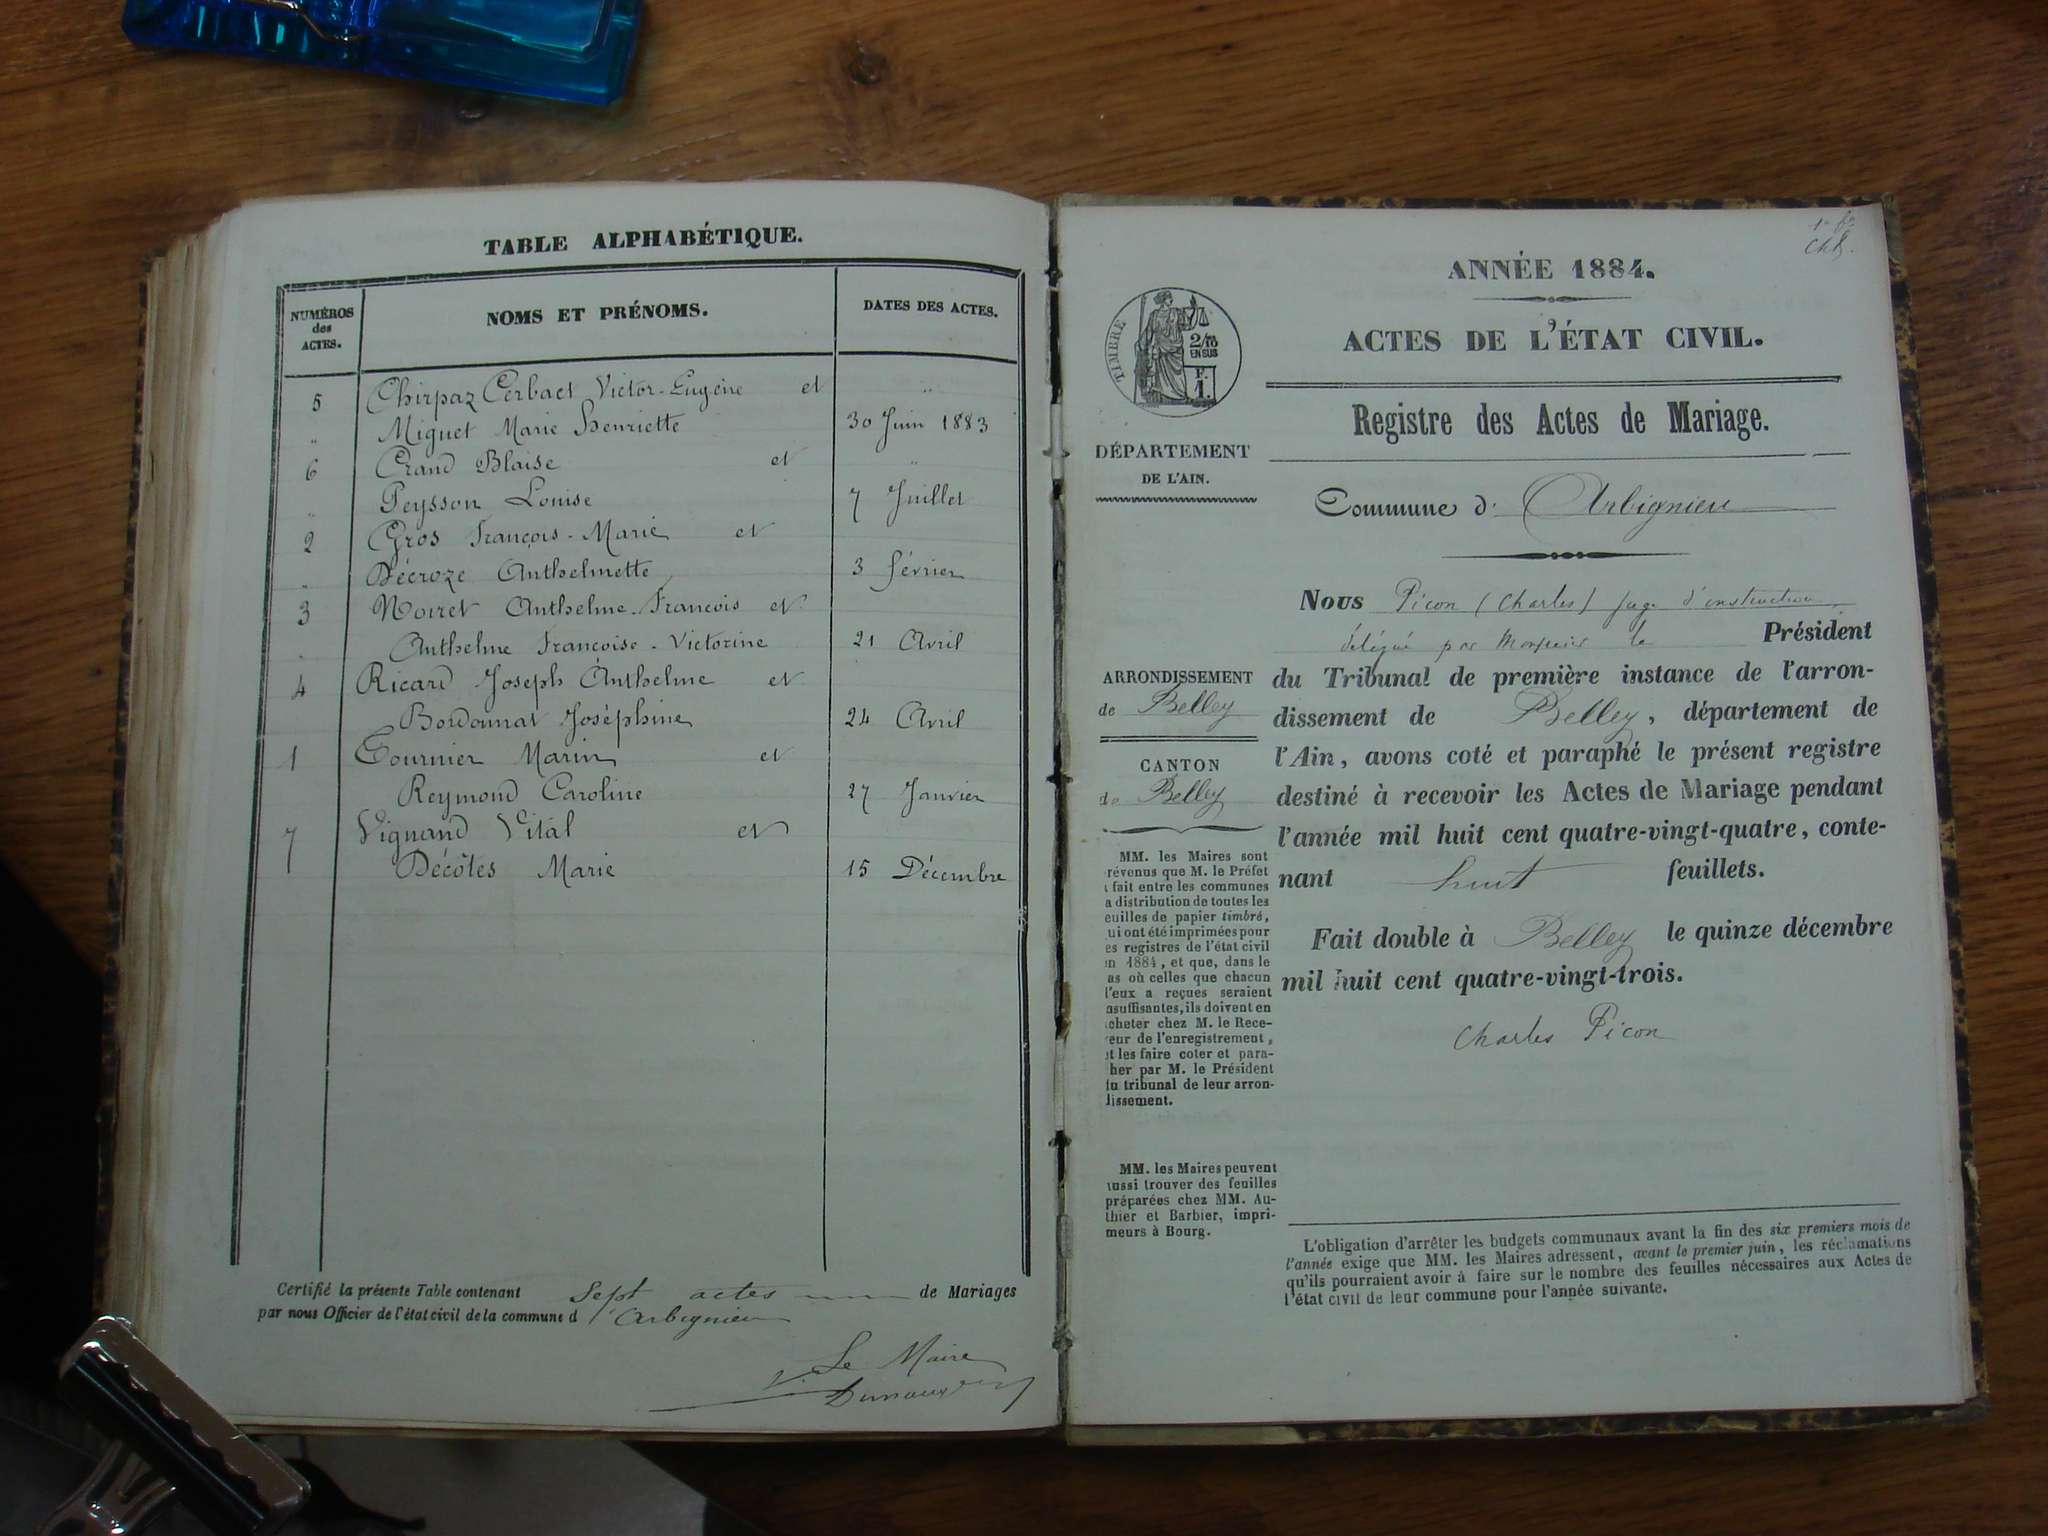 TABLE ALPHABÉTIQUE.
NUMÉROS des ACTES. NOMS ET PRÉNOMS. DATES DES ACTES.
5 Chirpaz Cerbact Victor-Eugène et "
" Miguet Marie Henriette 30 Juin 1883
6 Crand Blaise et "
" Peysson Louise 7 Juillet
2 Gros François-Marie et
" Décroze Anthelmette 3 février
3 Noiret Anthelme-François et
" Anthelme Françoise-Victorine 21 Avril
4 Ricard Joseph Anthelme et
Bordonnat Joséphine 24 Avril
1 Tournier Marin et
Reymond Caroline 27 Janvier
7 Vignand Vital et
Décôtes Marie 15 Décembre
Certifié la présente Table contenant Sept actes de Mariages
par nous Officier de l'état civil de la commune d'Arbignieu
Le Maire
ANNÉE 1884.
ACTES DE L'ÉTAT CIVIL.
TIMBRE
2/10
EN SUS
F.
1.
Registre des Actes de Mariage.
DÉPARTEMENT
DE L'AIN.
Commune d' Arbignieu
Nous Picon (Charles) juge d'instruction,
délégué par Monsieur le Président
ARRONDISSEMENT
de Belley
CANTON
de Belley
du Tribunal de première instance de l'arron-
dissement de Belley, département de
l'Ain, avons coté et paraphé le présent registre
destiné à recevoir les Actes de Mariage pendant
l'année mil huit cent quatre-vingt-quatre, conte-
nant huit feuillets.
Fait double à Belley le quinze décembre
mil huit cent quatre-vingt-trois.
Charles Picon
MM. les Maires sont
révenus que M. le Préfet
fait entre les communes
a distribution de toutes les
euilles de papier timbré,
ui ont été imprimées pour
es registres de l'état civil
n 1884, et que, dans le
as où celles que chacun
l'eux a reçues seraient
nsuffisantes, ils doivent en
cheter chez M. le Rece-
eur de l'enregistrement,
t les faire coter et para-
her par M. le Président
u tribunal de leur arron-
lissement.
MM. les Maires peuvent
ussi trouver des feuilles
préparées chez MM. Au-
thier et Barbier, impri-
meurs à Bourg.
L'obligation d'arrêter les budgets communaux avant la fin des six premiers mois de
l'année exige que MM. les Maires adressent, avant le premier juin, les réclamations
qu'ils pourraient avoir à faire sur le nombre des feuilles nécessaires aux Actes de
l'état civil de leur commune pour l'année suivante.